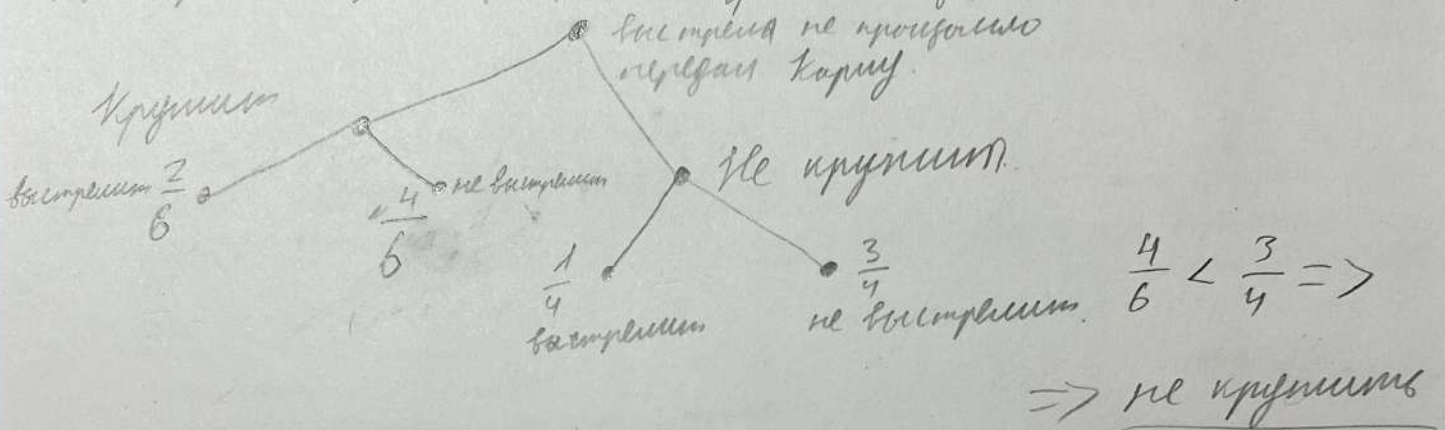 выстрела не произошло
передали Карлу.
Крутит
Не крутит.
выстрелит 2/6
4/6 не выстрелит
1/4
выстрелит
3/4
не выстрелит.
4/6 < 3/4 =>
=> не крутить